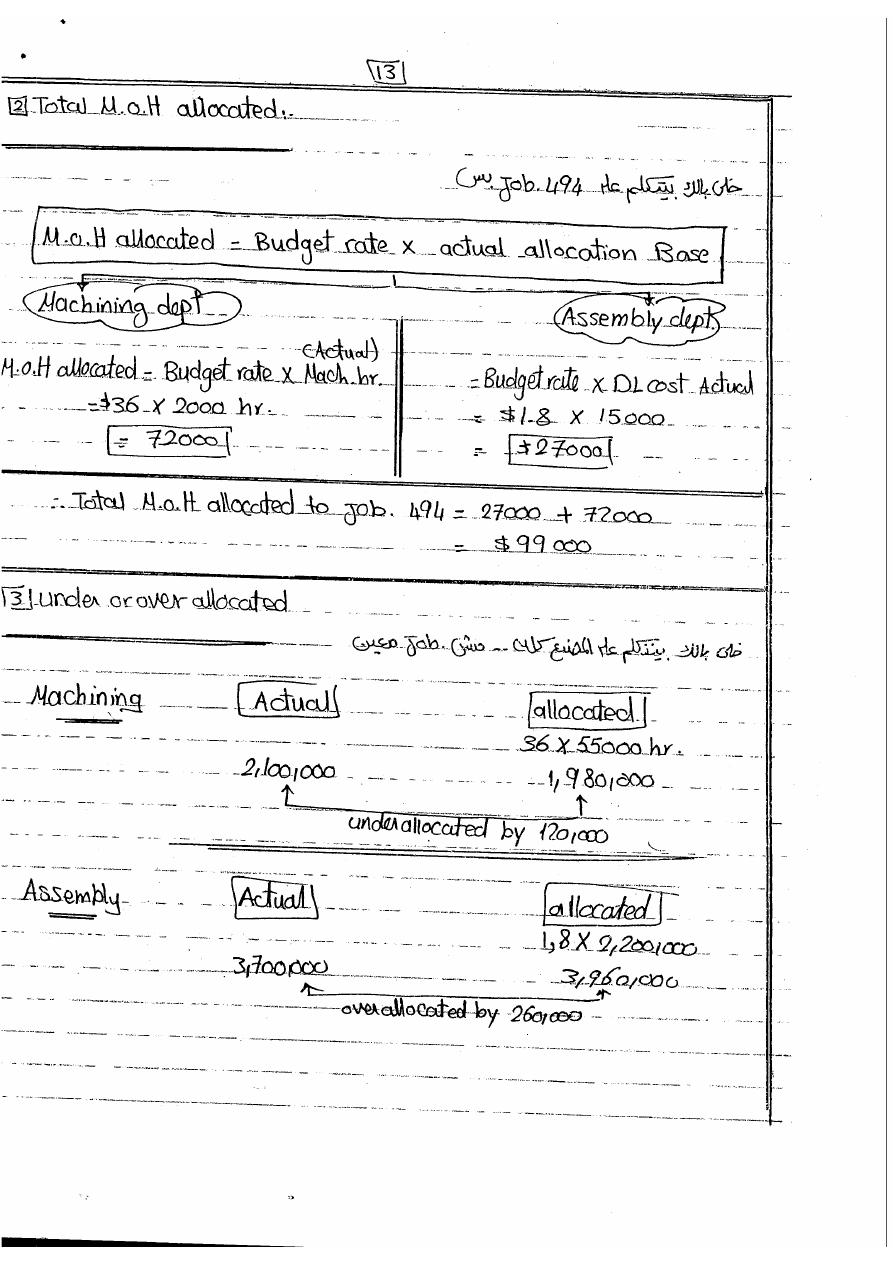 13
2 Total M.o.H allocated:-
خلى بالك بيتكلم على Job. 494 بس
M.o.H allocated = Budget rate x actual allocation Base
Machining dept
(Actual)
M.o.H allocated = Budget rate x Mach. hr.
= $36 x 2000 hr.
= 72000
Assembly dept.
= Budget rate x DL cost Actual
= $1.8 x 15000
= $27000
∴ Total M.o.H allocated to Job. 494 = 27000 + 72000
= $99 000
3 under or over allocated
خلى بالك بيتكلم على المصنع كله .. مش Job. معين
Machining Actual allocated
36 x 55000 hr.
2,100,000 1,980,000
under allocated by 120,000
Assembly Actual allocated
1,8 x 2,200,000
3,700,000 3,960,000
over allocated by 260,000